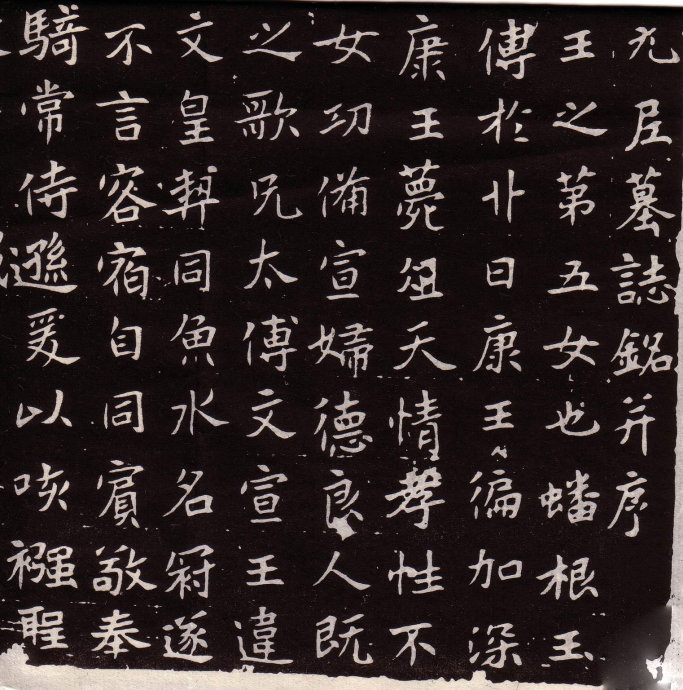 元尼墓誌銘并序
王之第五女也蟠根玉
傅於丱日康王徧加深
康王薨俎夭情孝性不
女功備宣婦德良人既
之歌兄太傅文宣王違
文皇契同魚水名冠遂
不言容宿自同賓敬奉
騎常侍遜爰以咳襁聖